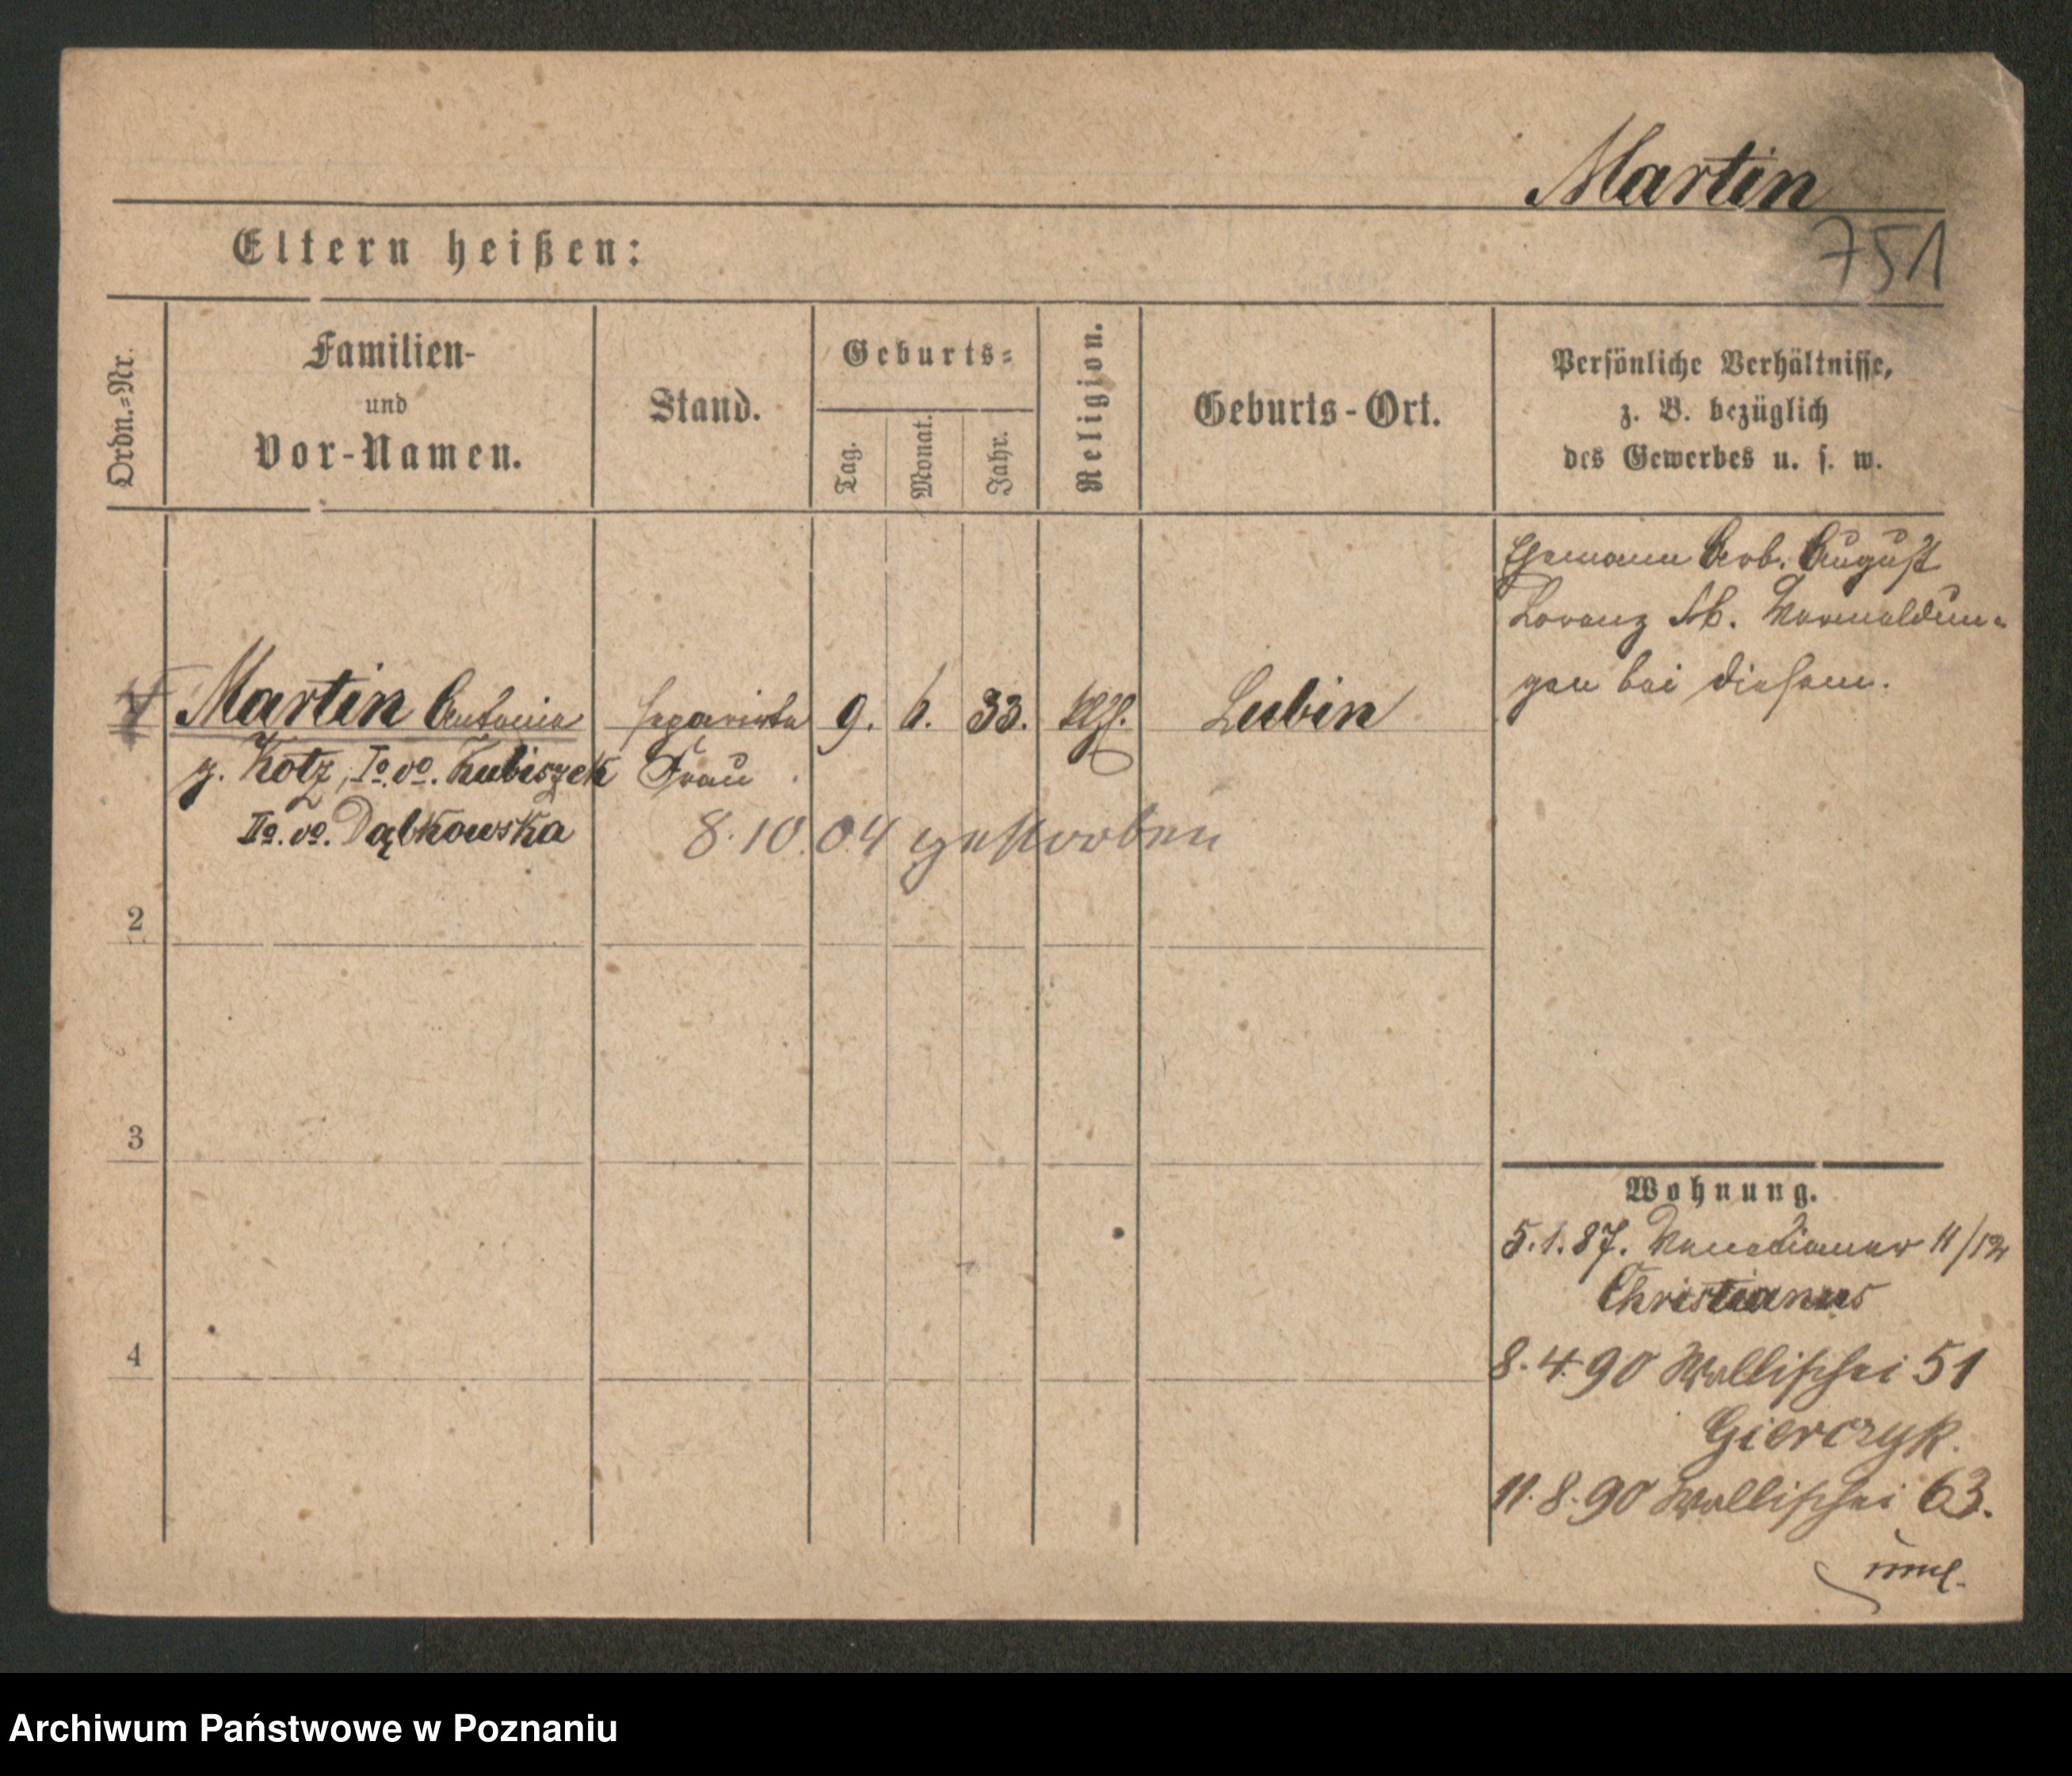 Martin
751
Eltern heißen:
Ordn.-Nr.
Familien-
und
Vor-Namen.
Stand.
Geburts-
Tag.
Monat.
Jahr.
Religion.
Geburts-Ort.
Persönliche Verhältnisse,
z. B. bezüglich
des Gewerbes u. s. w.
Ehemann Arb. August
Lorenz M. Vermeldun-
gen bei diesem.
Martin Antonie separirte 9. 6. 33. kth. Lubin
g. Kotz, Io. vo. Kubiszek Frau
IIo. vo. Dąbkowska
8.10.04 gestorben
2
3
4
Wohnung.
5.1.87. Venetianer 11/12
Christianus
8.4.90 Wallischei 51
Gierczyk.
11.8.90 Wallischei 63.
Archiwum Państwowe w Poznaniu